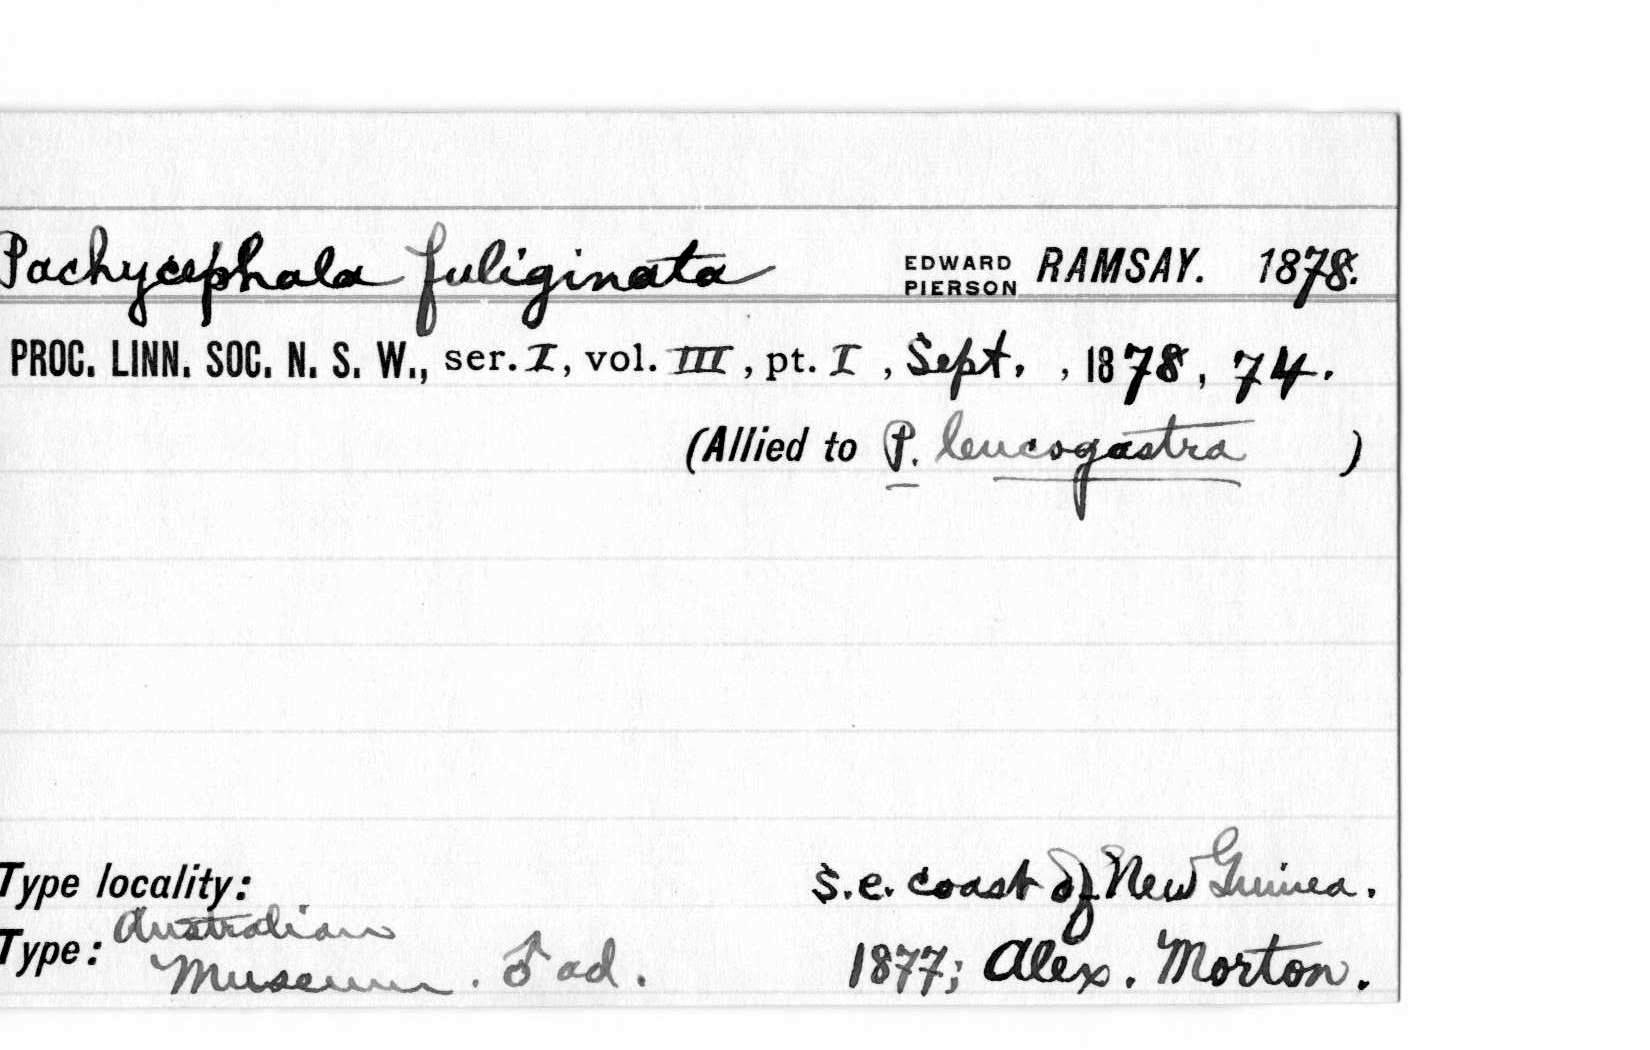 Pachycephala fuliginata EDWARD PIERSON RAMSAY. 1878.
PROC. LINN. SOC. N. S. W., ser. I, vol. III, pt. I, Sept., 1878, 74.
(Allied to P. leucogastra )
Type locality: s.e. coast of New Guinea.
Type: Australian Museum. ♂ ad. 1877; Alex. Morton.